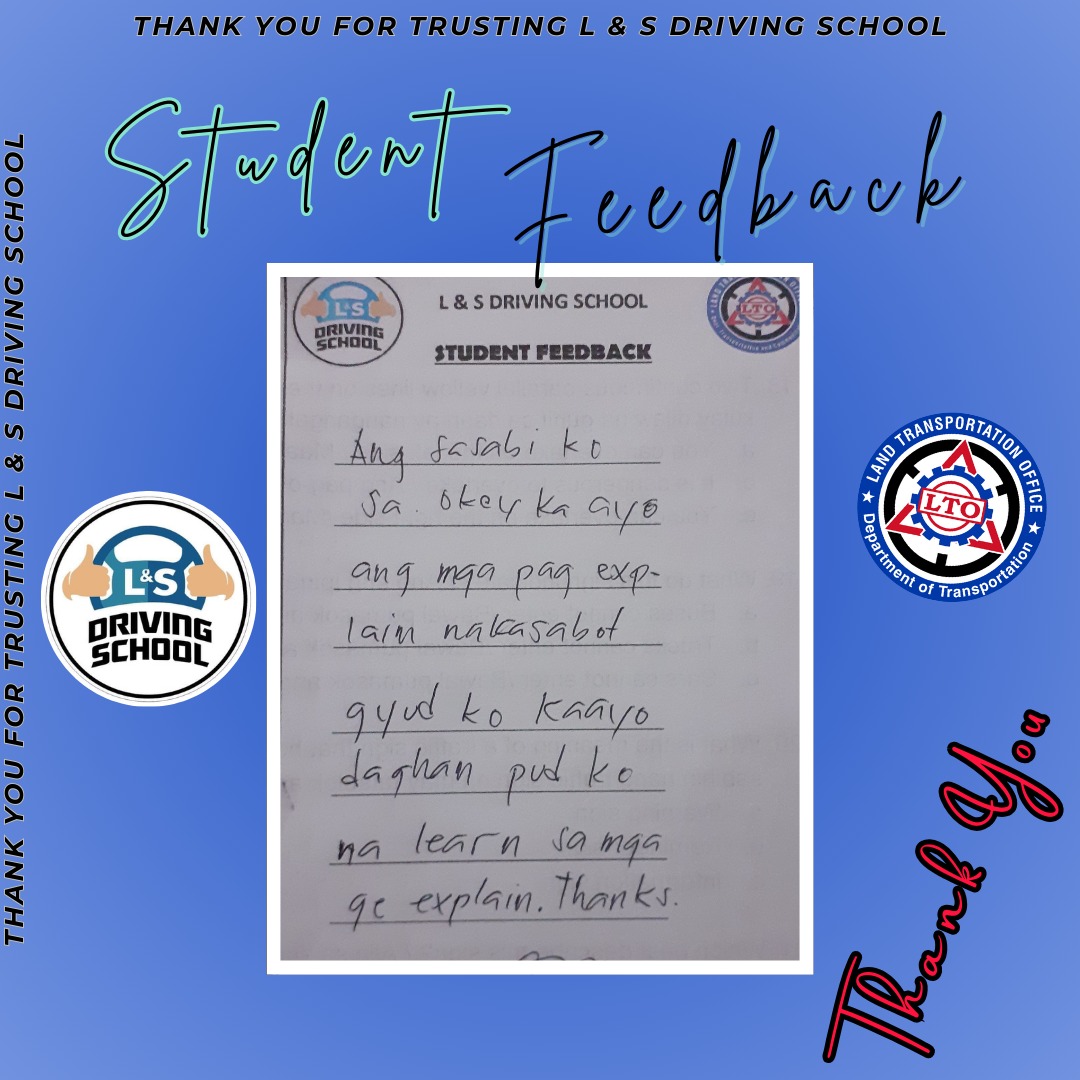 THANK YOU FOR TRUSTING L & S DRIVING SCHOOL
THANK YOU FOR TRUSTING L & S DRIVING SCHOOL
Student Feedback
L&S
DRIVING
SCHOOL
L & S DRIVING SCHOOL
LTO
STUDENT FEEDBACK
Ang sasabi ko
sa. okey ka ayo
ang mga pag exp-
lain nakasabot
gyud ko kaayo
daghan pud ko
na learn sa mga
ge explain. Thanks.
L&S
DRIVING
SCHOOL
LAND TRANSPORTATION OFFICE
LTO
Department of Transportation
Thank You